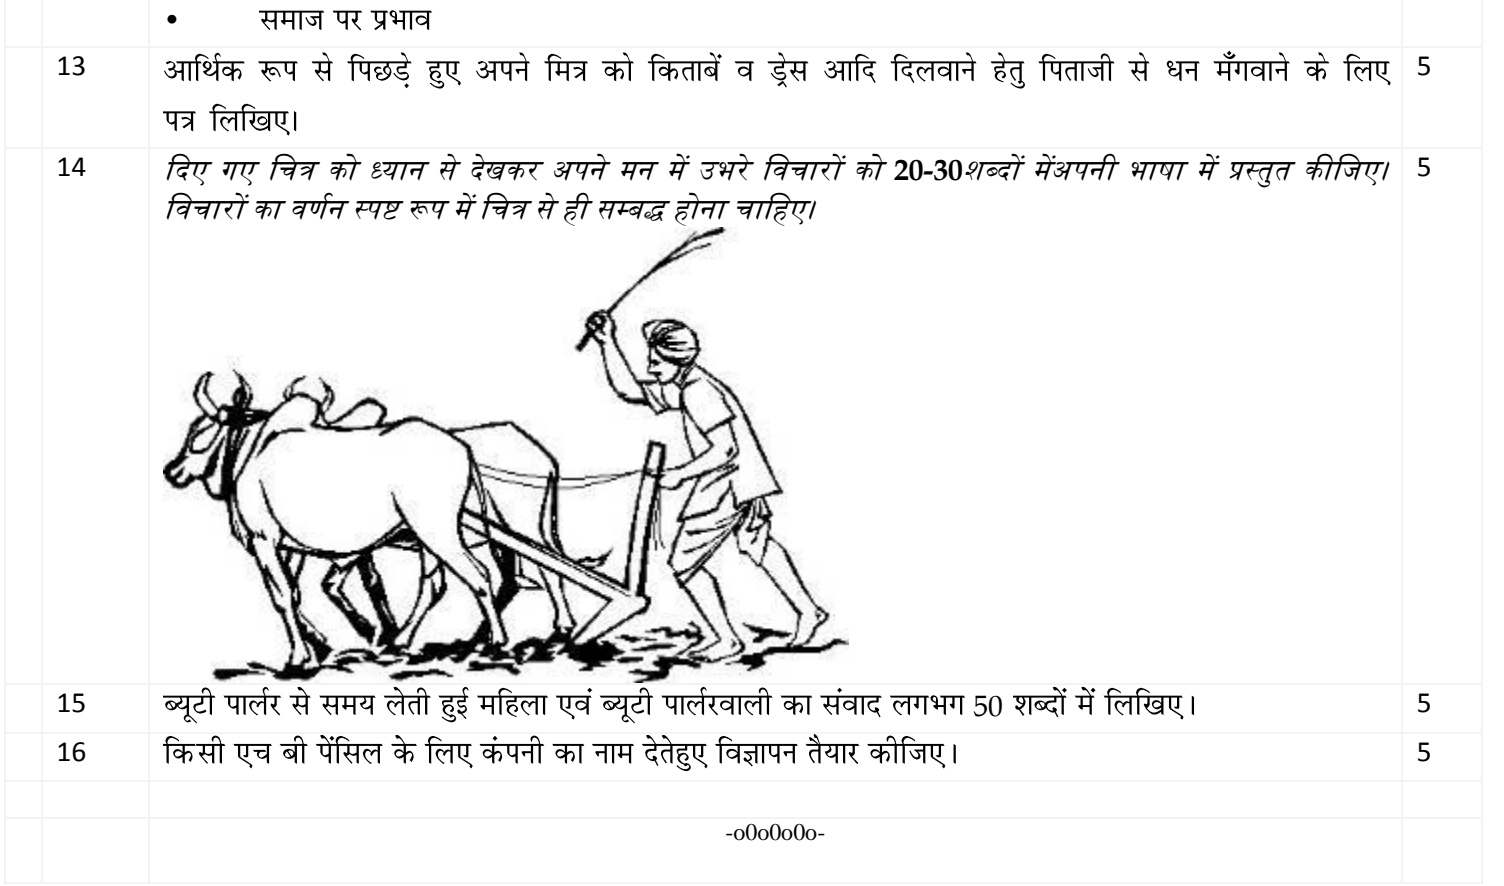 • समाज पर प्रभाव
13 आर्थिक रूप से पिछड़े हुए अपने मित्र को किताबें व ड्रेस आदि दिलवाने हेतु पिताजी से धन मँगवाने के लिए 5
पत्र लिखिए।
14 दिए गए चित्र को ध्यान से देखकर अपने मन में उभरे विचारों को 20-30शब्दों मेंअपनी भाषा में प्रस्तुत कीजिए। 5
विचारों का वर्णन स्पष्ट रूप में चित्र से ही सम्बद्ध होना चाहिए।
15 ब्यूटी पार्लर से समय लेती हुई महिला एवं ब्यूटी पार्लरवाली का संवाद लगभग 50 शब्दों में लिखिए। 5
16 किसी एच बी पेंसिल के लिए कंपनी का नाम देतेहुए विज्ञापन तैयार कीजिए। 5
-o0o0o0o-